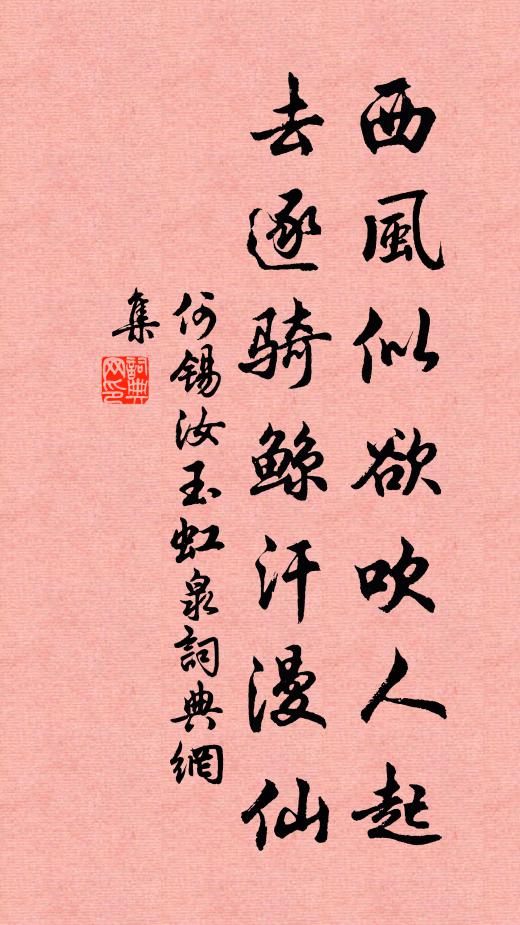 西風似欲吹人起
去逐騎鯨汗漫仙
何錫汝玉虹泉詞典網
集
詞典
网印